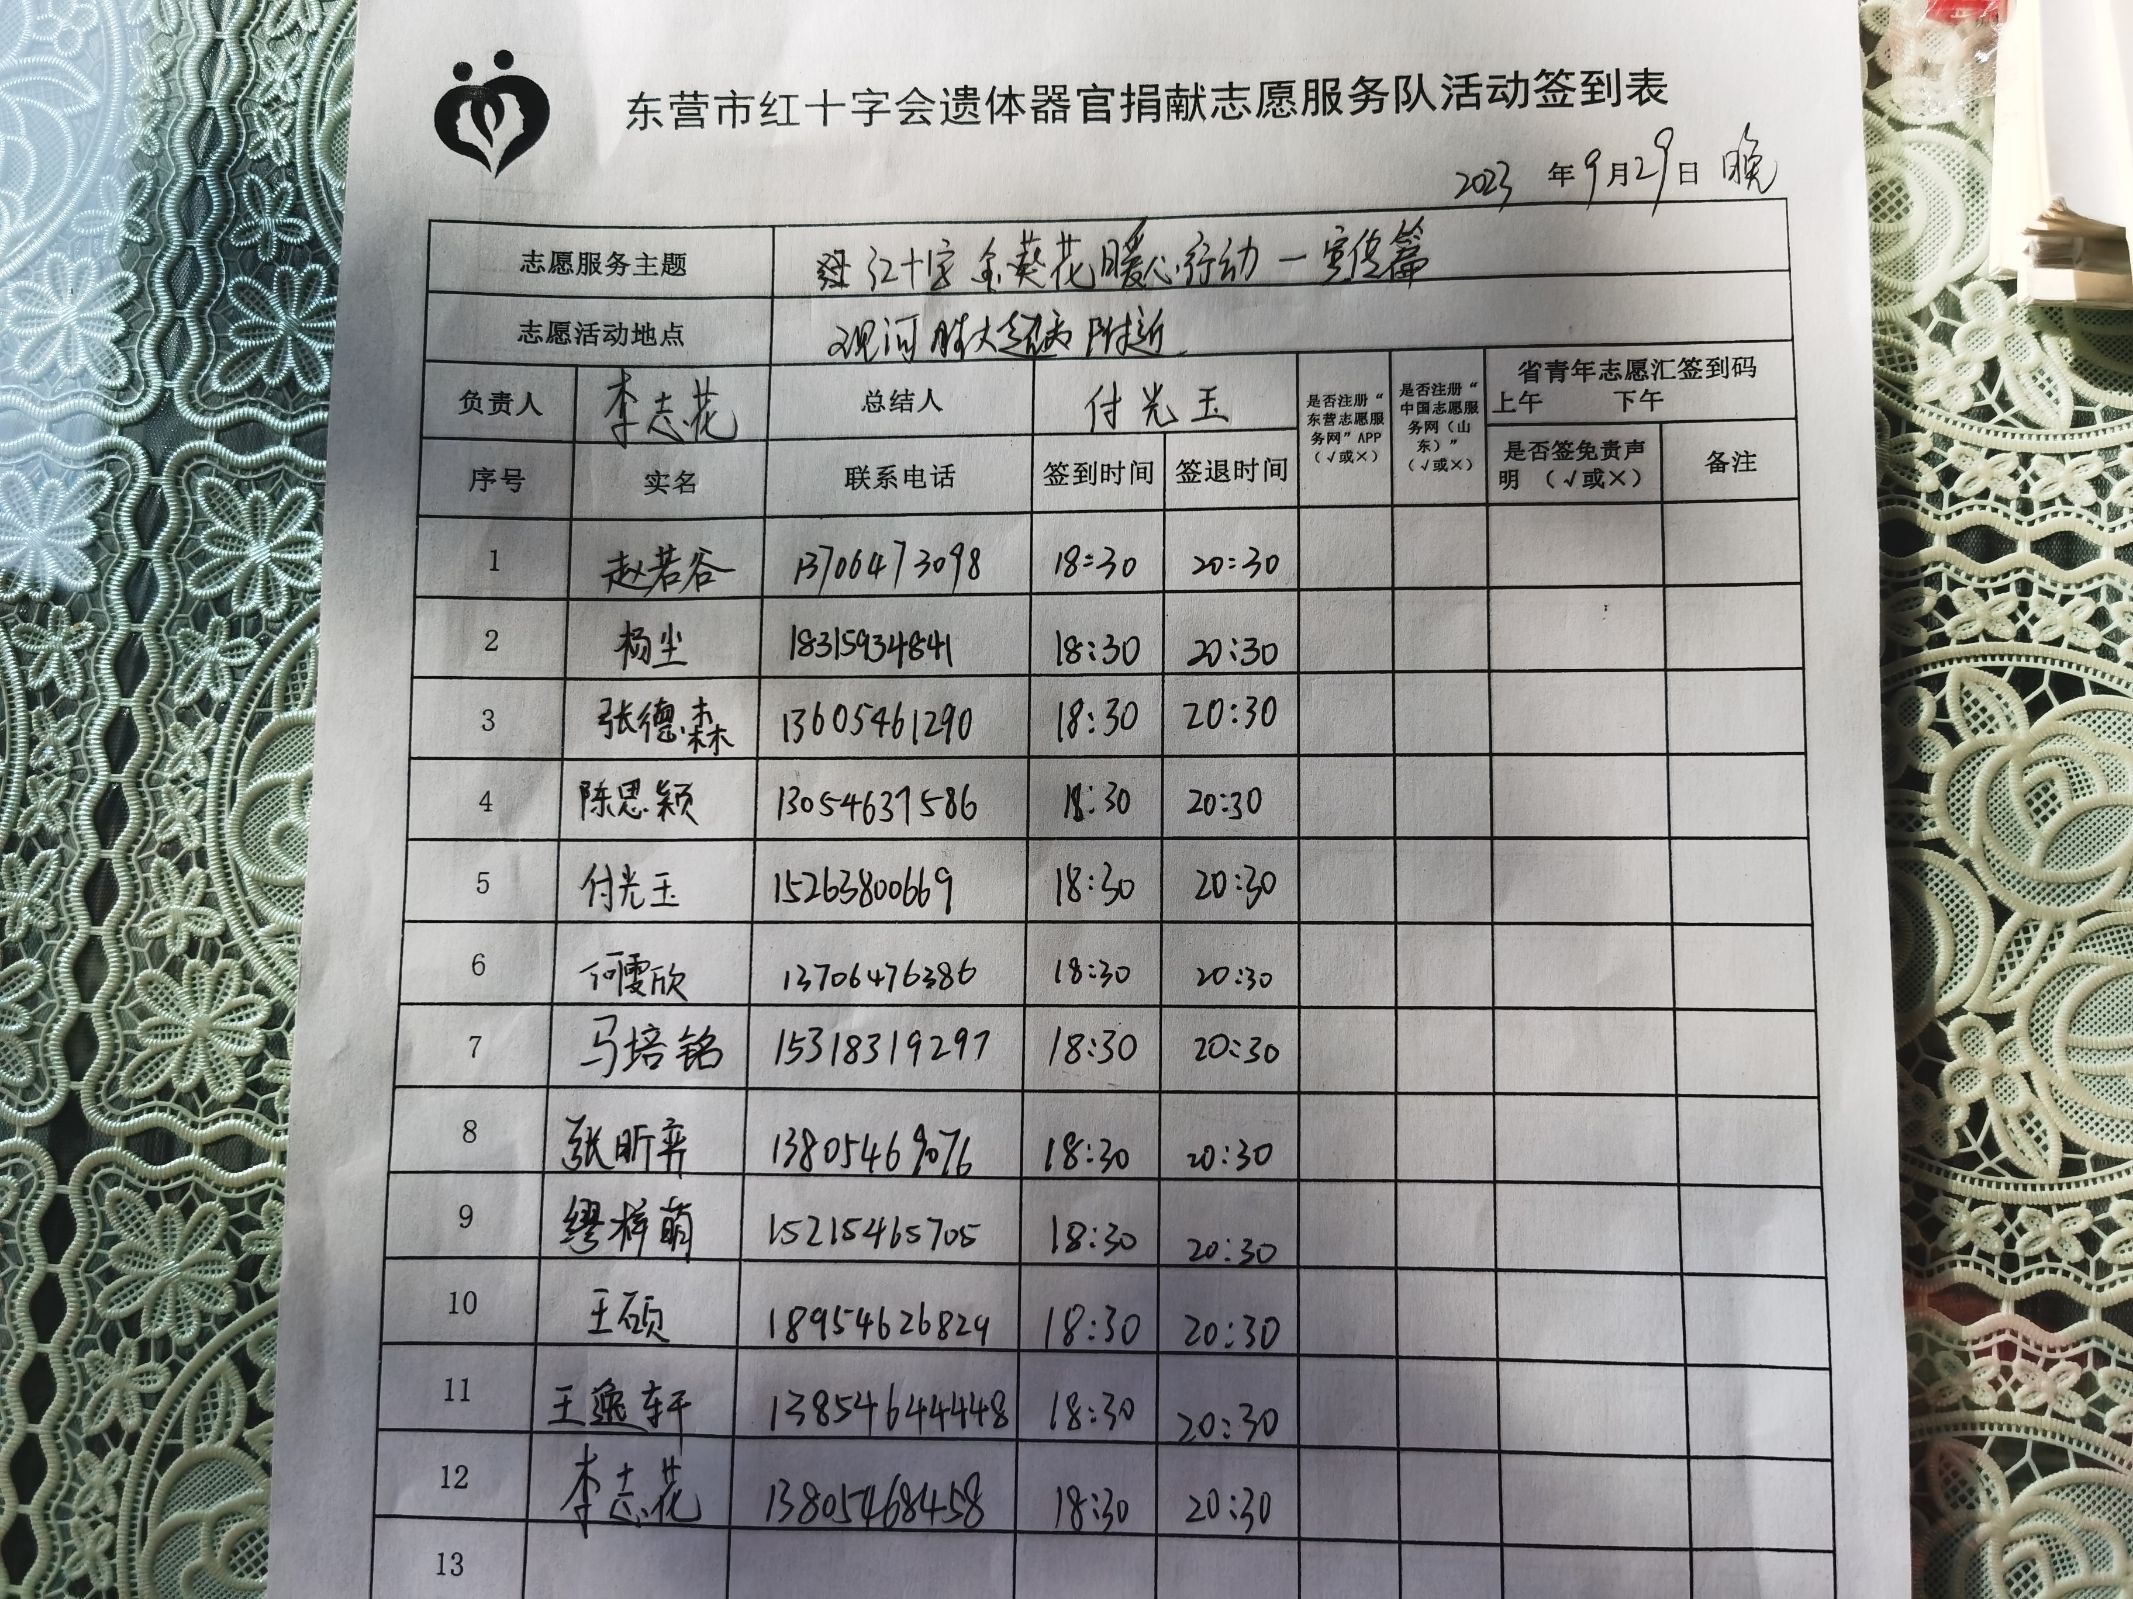 东营市红十字会遗体器官捐献志愿服务队活动签到表
2023 年9月29日 晚
志愿服务主题 红十字金葵花暖心行动一宣传篇
志愿活动地点 观河胜大超市附近
负责人 李志花 总结人 付光玉 是否注册“东营志愿服务网”APP（√或×） 是否注册“中国志愿服务网（山东）”（√或×） 省青年志愿汇签到码 上午 下午
序号 实名 联系电话 签到时间 签退时间 是否签免责声明（√或×） 备注
1 赵若谷 13706473098 18:30 20:30
2 杨尘 18315934841 18:30 20:30
3 张德森 13605461290 18:30 20:30
4 陈思颖 13054637586 18:30 20:30
5 付光玉 15263800669 18:30 20:30
6 何雯欣 13706476386 18:30 20:30
7 马培铭 15318319297 18:30 20:30
8 张昕弈 13805469076 18:30 20:30
9 缪梓萌 15215465705 18:30 20:30
10 王硕 18954626829 18:30 20:30
11 王逸轩 13854644448 18:30 20:30
12 李志花 13805468458 18:30 20:30
13